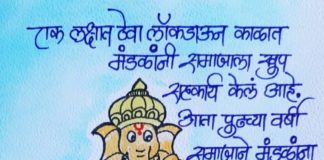 एक लक्षात ठेवा लॉकडाऊन काळात
मंडळांनी समाजाला खुप
सहकार्य केलं आहे.
आता पुढच्या वर्षी
समाजाने मंडळांना